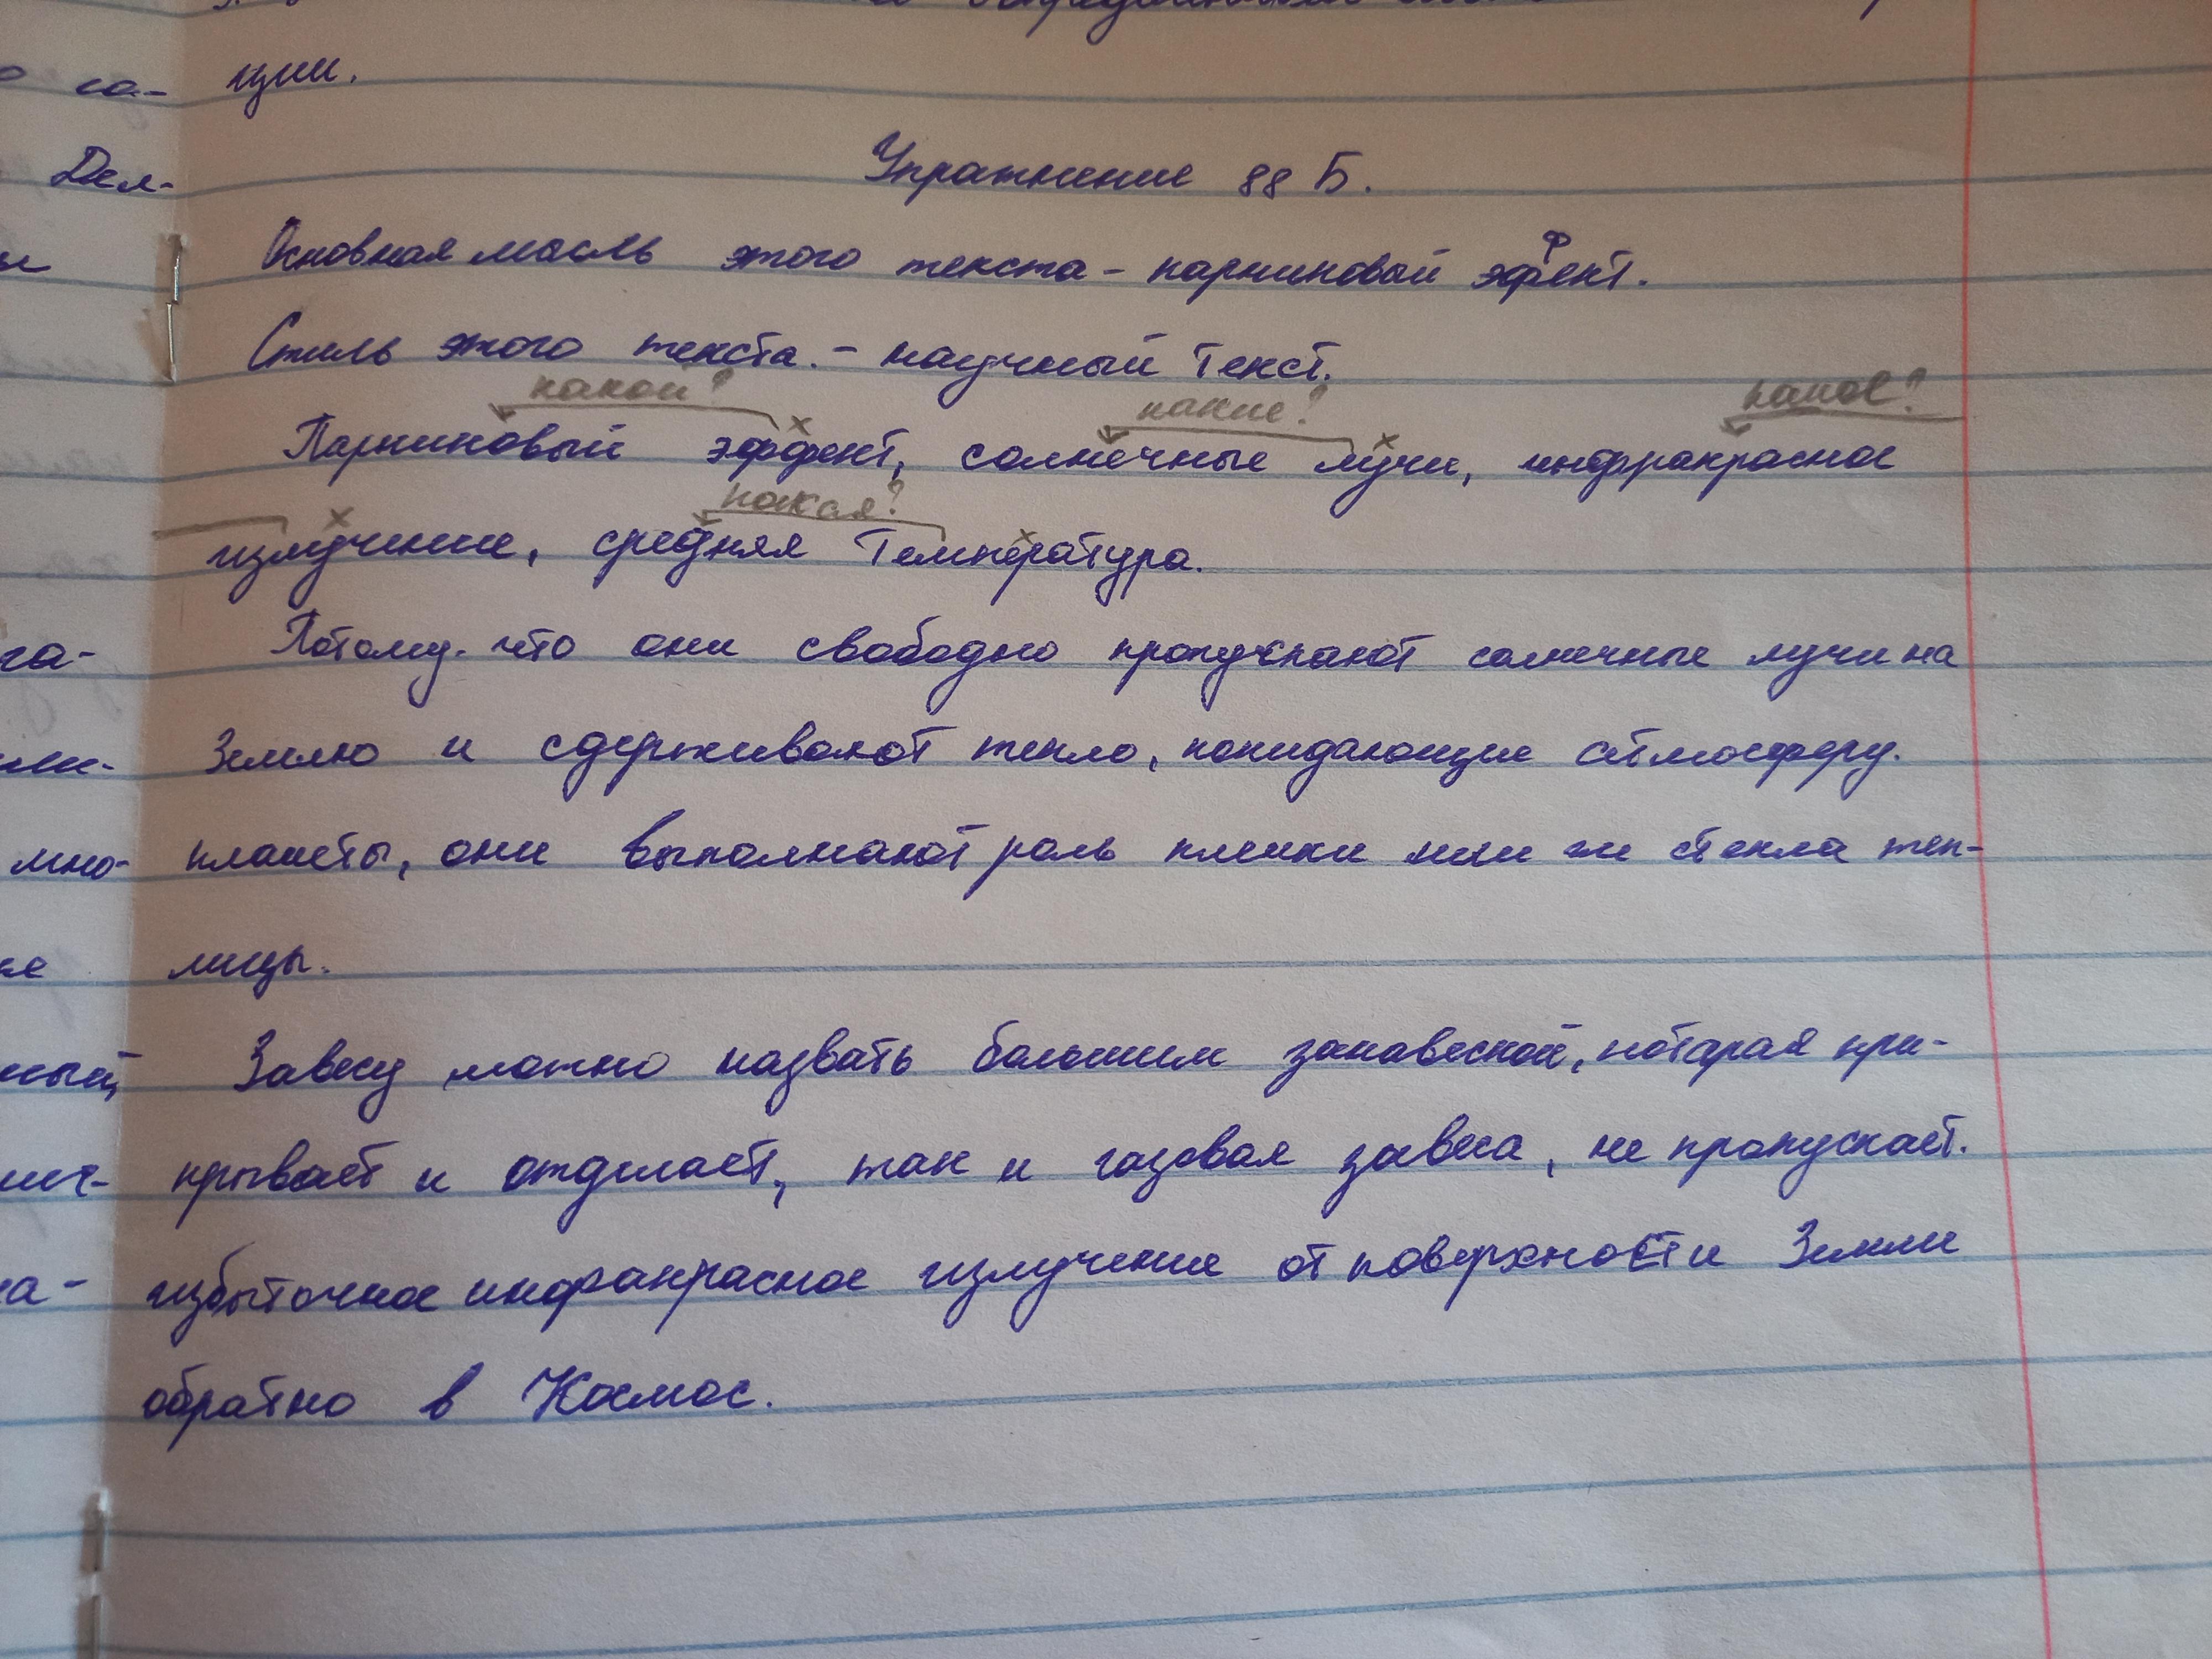 ции.
Упражнение 88 Б.
Основная мысль этого текста - парниковый эффект.
Стиль этого текста. - научный текст.
какой? какие? какое?
Парниковый эффект, солнечные лучи, инфракрасное
какая?
излучение, средняя температура.
Потому что они свободно пропускают солнечные лучи на
Землю и сдерживают тепло, покидающие атмосферу.
планеты, они выполняют роль пленки или же стекла теп-
лицы.
Завесу можно назвать большим занавеской, которая при-
крывает и отделает, так и газовая завеса, не пропускает.
избыточное инфракрасное излучение от поверхности Земли
обратно в Космос.